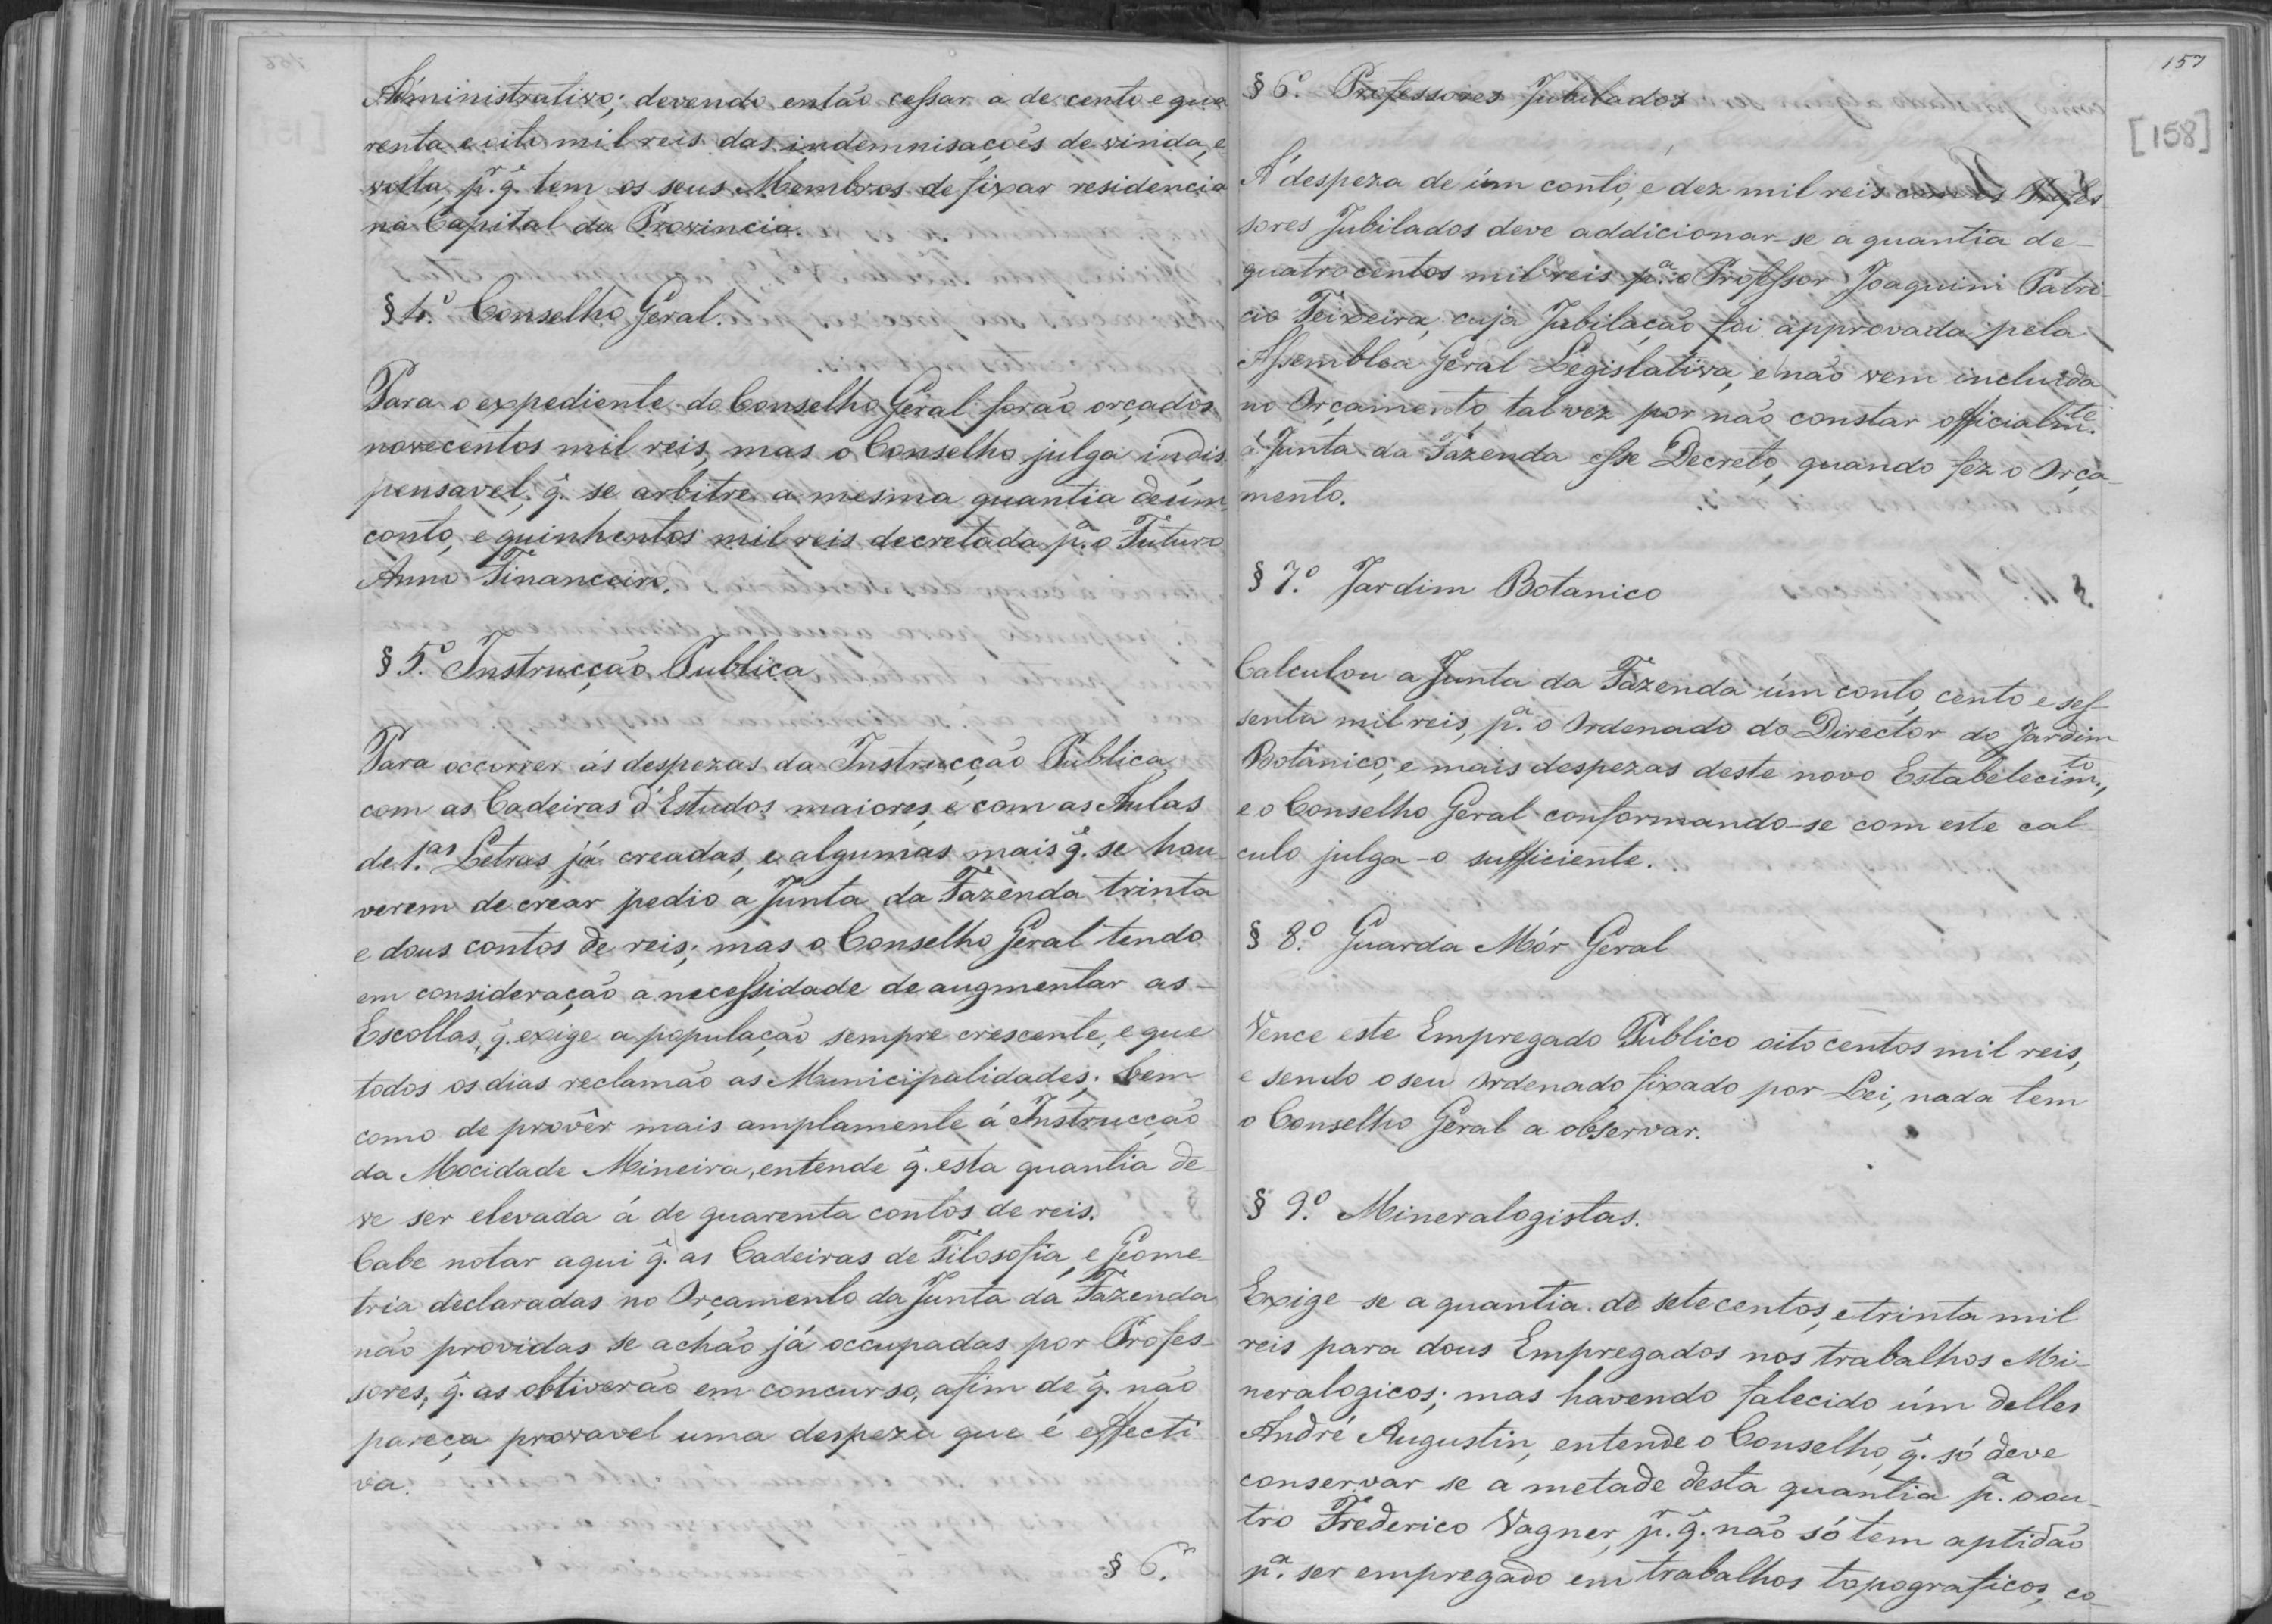 Administrativo; devendo então cessar a de cento e qua
renta e oito mil reis das indemnisações de vinda, e
volta, p.r q̃. tem os seus Membros de fixar residencia
na Capital da Provincia.
§ 4.º Conselho Geral.
Para o expediente do Conselho Geral forão orçados
novecentos mil reis, mas o Conselho julga indis
pensavel, q̃. se arbitre a mesma quantia de úm
conto, e quinhentos mil reis decretada p.a o Futuro
Anno Financeiro.
§ 5.º Instrucção Publica
Para occorrer ás despezas da Instrucção Publica
com as Cadeiras d'Estudos maiores, e com as Aulas
de 1.as Letras já creadas, e algumas mais q̃. se hou-
verem de crear pedio a Junta da Fazenda trinta
e dous contos de reis; mas o Conselho Geral tendo
em consideração a necessidade de augmentar as-
Escollas, q̃. exige a população sempre crescente, e que
todos os dias reclamão as Municipalidades; bem
como de provêr mais amplamente á Instrucção
da Mocidade Mineira, entende q̃. esta quantia de-
ve ser elevada á de quarenta contos de reis.
Cabe notar aqui q̃. as Cadeiras de Filosofia, e Geome
tria declaradas no Orçamento da Junta da Fazenda
não providas se achão já occupadas por Profes-
sores, q̃. as obtiverão em concurso, afim de q̃. não
pareça provavel uma despeza que é effecti
va.
§ 6.º
157
[158]
§ 6.º Professores Jubilados
Á despeza de úm conto, e dez mil reis com os Profes
sores Jubilados deve addicionar-se a quantia de-
quatrocentos mil reis p.a o Professor Joaquim Patri
cio Teixeira, cuja Jubilação foi approvada pela
Assemblea Geral Legislativa, e não vem incluida
no Orçamento, talvez por não constar officialm.te
á Junta da Fazenda esse Decreto, quando fez o Orça-
mento.
§ 7.º Jardim Botanico
Calculou a Junta da Fazenda úm conto, cento e ses-
senta mil reis, p.a o Ordenado do Director do Jardim
Botanico, e mais despezas deste novo Estabelecim.to,
e o Conselho Geral conformando-se com este cal
culo julga-o sufficiente.
§ 8.º Guarda Mór Geral
Vence este Empregado Publico oito centos mil reis,
e sendo o seu Ordenado fixado por Lei, nada tem
o Conselho Geral a observar.
§ 9.º Mineralogistas.
Exige-se a quantia de setecentos, e trinta mil
reis para dous Empregados nos trabalhos Mi-
neralogicos; mas havendo falecido úm delles
André Augustin, entende o Conselho, q̃. só deve
conservar se a metade desta quantia p.a o ou-
tro Frederico Vagner, p.r q̃. não só tem aptidão
p.a ser empregado em trabalhos topograficos, co-